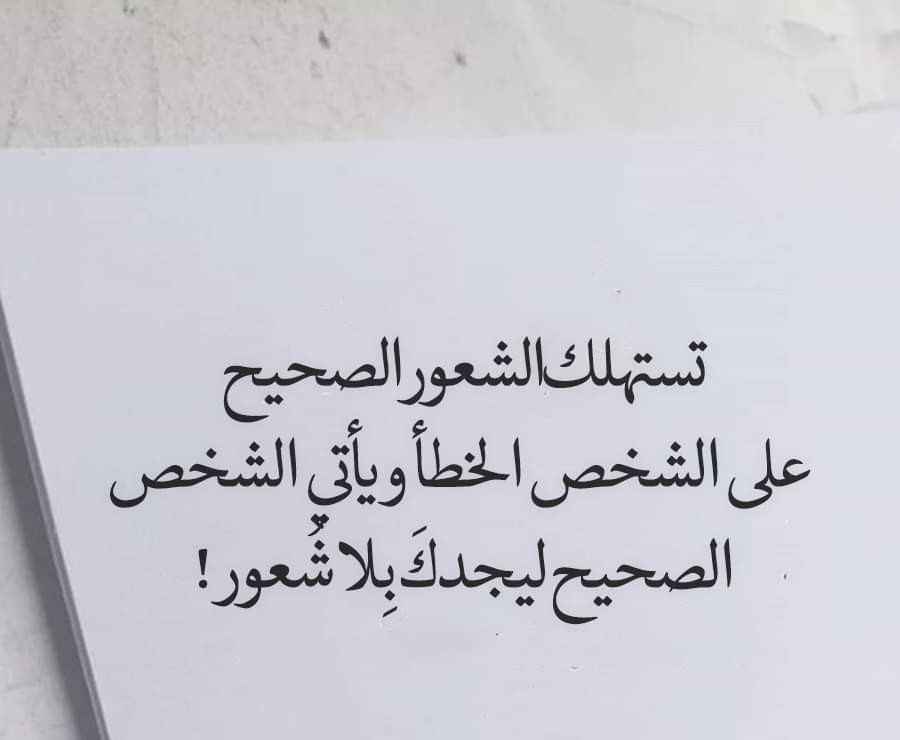 تستهلك الشعور الصحيح
على الشخص الخطأ ويأتي الشخص
الصحيح ليجدكَ بِلا شُعور !